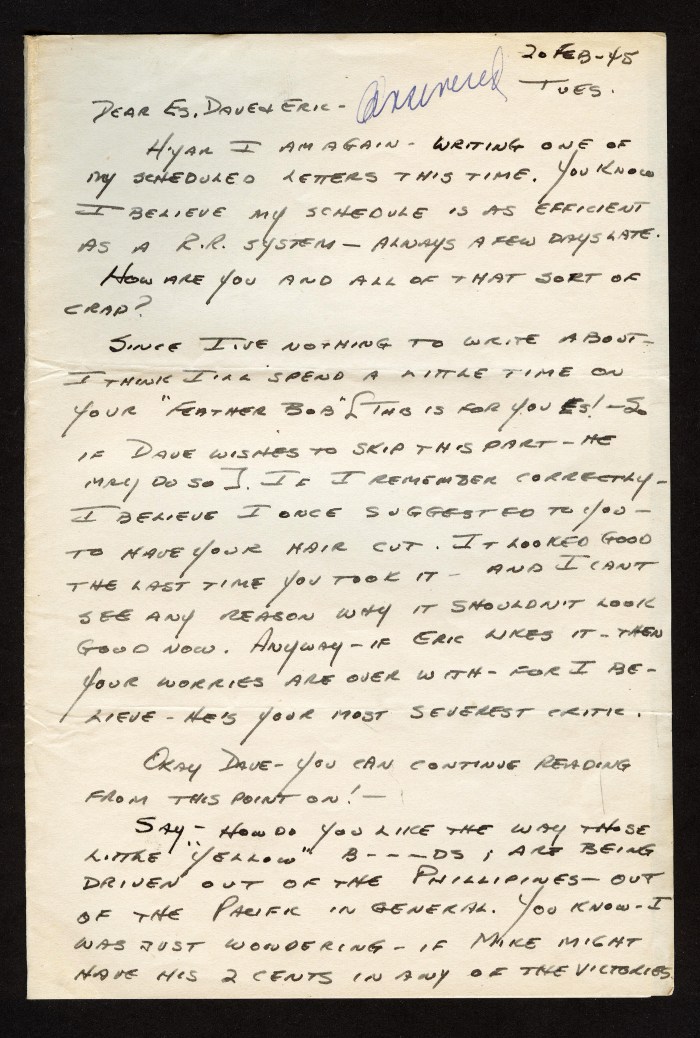 20 FEB-45
TUES.
Answered
DEAR ES, DAVE & ERIC -
H'YAR I AM AGAIN - WRITING ONE OF
MY SCHEDULED LETTERS THIS TIME. YOU KNOW
I BELIEVE MY SCHEDULE IS AS EFFICIENT
AS A R.R. SYSTEM - ALWAYS A FEW DAYS LATE.
HOW ARE YOU AND ALL OF THAT SORT OF
CRAP?
SINCE I'VE NOTHING TO WRITE ABOUT -
I THINK I'LL SPEND A LITTLE TIME ON
YOUR "FEATHER BOB" [THIS IS FOR YOU ES! - SO
IF DAVE WISHES TO SKIP THIS PART - HE
MAY DO SO]. IF I REMEMBER CORRECTLY -
I BELIEVE I ONCE SUGGESTED TO YOU -
TO HAVE YOUR HAIR CUT. IT LOOKED GOOD
THE LAST TIME YOU TOOK IT - AND I CANT
SEE ANY REASON WHY IT SHOULDN'T LOOK
GOOD NOW. ANYWAY - IF ERIC LIKES IT - THEN
YOUR WORRIES ARE OVER WITH - FOR I BE-
LIEVE - HE'S YOUR MOST SEVEREST CRITIC.
OKAY DAVE - YOU CAN CONTINUE READING
FROM THIS POINT ON! -
SAY - HOW DO YOU LIKE THE WAY THOSE
LITTLE "YELLOW" B----DS ; ARE BEING
DRIVEN OUT OF THE PHILLIPINES - OUT
OF THE PACIFIC IN GENERAL. YOU KNOW - I
WAS JUST WONDERING - IF MIKE MIGHT
HAVE HIS 2 CENTS IN ANY OF THE VICTORIES